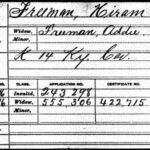 Freeman, Hiram
Widow, Freeman, Addie
Minor,
K 14 Ky. Cav.
CLASS. APPLICATION NO. CERTIFICATE NO.
Invalid, 243 298
Widow, 555,306 422,715
Minor,